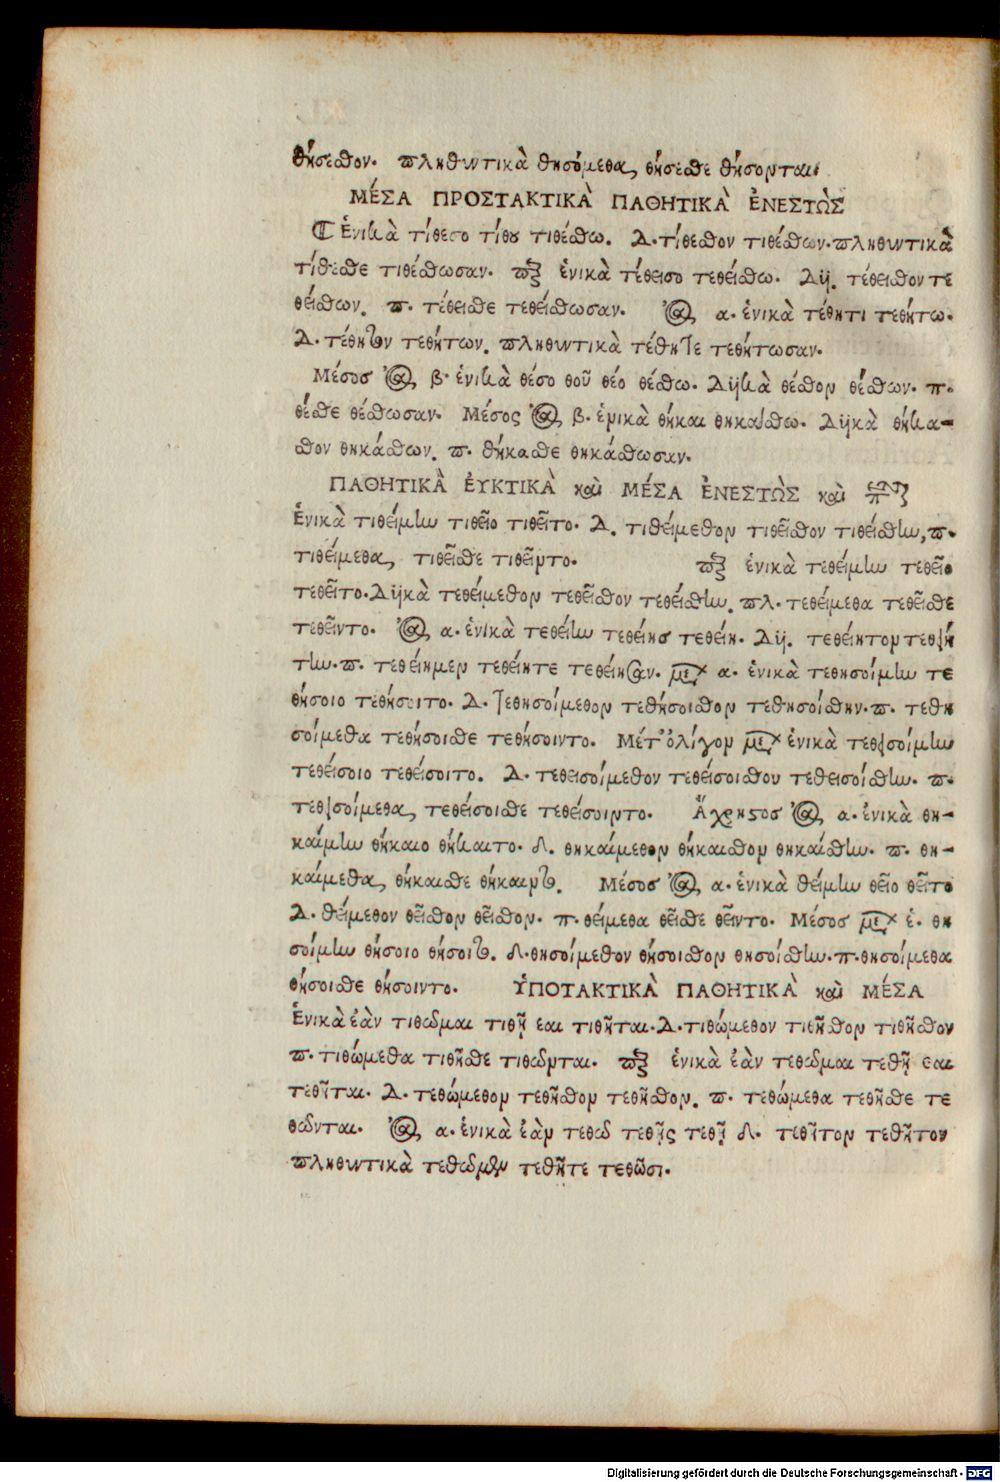 θήσεσθον. πληθυντικὰ θησόμεθα, θήσεσθε θήσονται.
ΜΈΣΑ ΠΡΟΣΤΑΚΤΙΚᾺ ΠΑΘΗΤΙΚᾺ ἘΝΕΣΤῺΣ
Ἑνικὰ τίθεσο τίθου τιθέσθω. Δ. τίθεσθον τιθέσθων. πληθυντικὰ
τίθεσθε τιθέσθωσαν. ἑνικὰ τέθεισο τεθείσθω. Δυϊ. τέθεισθον τε
θείσθων. π. τέθεισθε τεθείσθωσαν. α. ἑνικὰ τέθητι τεθήτω.
Δ. τέθητον τεθήτων. πληθυντικὰ τέθητε τεθήτωσαν.
Μέσος β. ἑνικὰ θέσο θοῦ θέο θέσθω. Δυϊκὰ θέσθον θέσθων. π.
θέσθε θέσθωσαν. Μέσος β. ἑνικὰ θῆκαι θηκάσθω. Δυϊκὰ θήκα-
σθον θηκάσθων. π. θήκασθε θηκάσθωσαν.
ΠΑΘΗΤΙΚᾺ ἘΥΚΤΙΚᾺ καὶ ΜΈΣΑ ἘΝΕΣΤῺΣ καὶ
Ἑνικὰ τιθείμην τιθεῖο τιθεῖτο. Δ. τιθείμεθον τιθεῖσθον τιθείσθην, π.
τιθείμεθα, τιθεῖσθε τιθεῖντο. ἑνικὰ τεθείμην τεθεῖο
τεθεῖτο. Δυϊκὰ τεθείμεθον τεθεῖσθον τεθείσθην. πλ. τεθείμεθα τεθεῖσθε
τεθεῖντο. α. ἑνικὰ τεθείην τεθείης τεθείη. Δυϊ. τεθείητον τεθειή
την. π. τεθείημεν τεθείητε τεθείησαν. α. ἑνικὰ τεθησοίμην τε
θήσοιο τεθήσοιτο. Δ. τεθησοίμεθον τεθήσοισθον τεθησοίσθην. π. τεθη
σοίμεθα τεθήσοισθε τεθήσοιντο. Μέτ' ὀλίγον ἑνικὰ τεθεισοίμην
τεθείσοιο τεθείσοιτο. Δ. τεθεισοίμεθον τεθείσοισθον τεθεισοίσθην. π.
τεθεισοίμεθα, τεθείσοισθε τεθείσοιντο. Ἄχρηστος α. ἑνικὰ θη-
καίμην θήκαιο θήκαιτο. δ. θηκαίμεθον θήκαισθον θηκαίσθην. π. θη-
καίμεθα, θήκαισθε θήκαιντο. Μέσος α. ἑνικὰ θείμην θεῖο θεῖτο
Δ. θείμεθον θεῖσθον θεῖσθον. π. θείμεθα θεῖσθε θεῖντο. Μέσος ἑ. θη
σοίμην θήσοιο θήσοιτο. δ. θησοίμεθον θήσοισθον θησοίσθην. π. θησοίμεθα
θήσοισθε θήσοιντο. ὙΠΟΤΑΚΤΙΚᾺ ΠΑΘΗΤΙΚᾺ καὶ ΜΈΣΑ
Ἑνικὰ ἐὰν τιθῶμαι τιθῇ εαι τιθῆται. Δ. τιθώμεθον τιθῆσθον τιθῆσθον
π. τιθώμεθα τιθῆσθε τιθῶνται. ἑνικὰ ἐὰν τεθῶμαι τεθῇ εαι
τεθῆται. Δ. τεθώμεθον τεθῆσθον τεθῆσθον. π. τεθώμεθα τεθῆσθε τε
θῶνται. α. ἑνικὰ ἐὰν τεθῶ τεθῇς τεθῇ δ. τεθῆτον τεθῆτον
πληθυντικὰ τεθῶμεν τεθῆτε τεθῶσι.
Digitalisierung gefördert durch die Deutsche Forschungsgemeinschaft - DFG